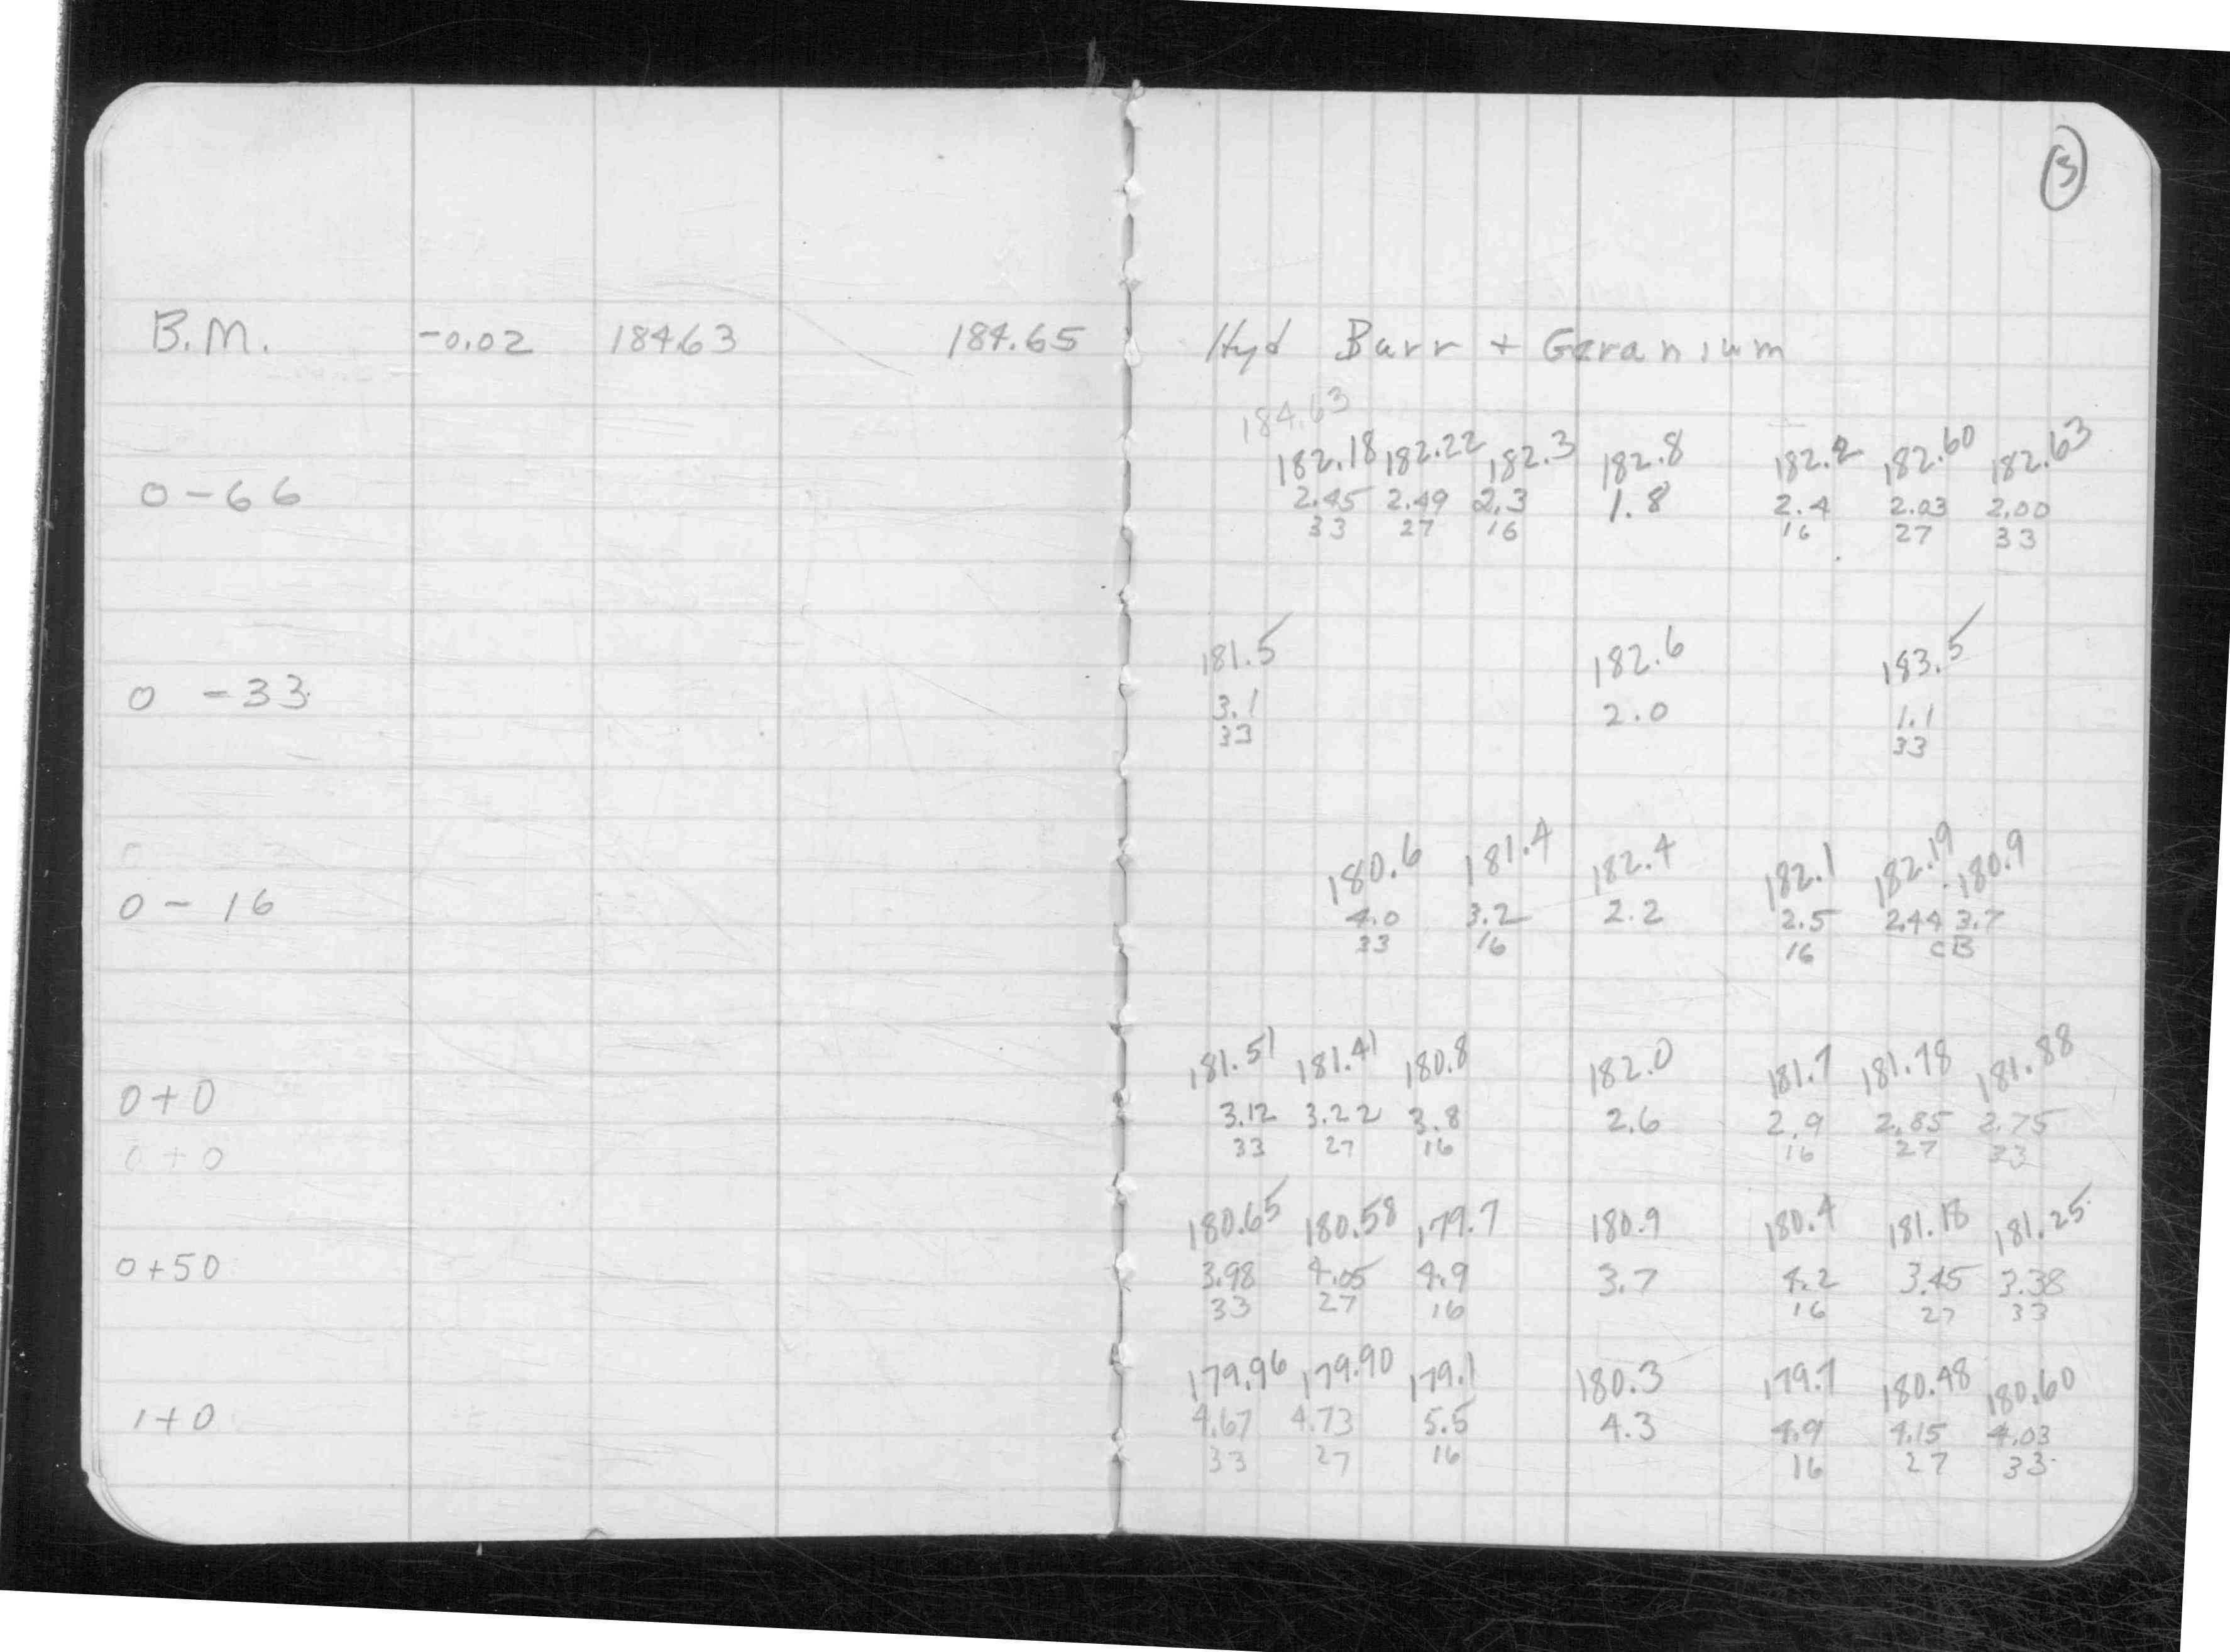 3
B.M. -0.02 184.63 184.65 Hyd Barr + Geranium
184.63
182.18 182.22 182.3 182.8 182.2 182.60 182.63
0-66 2.45 2.49 2.3 1.8 2.4 2.03 2.00
33 27 16 16 27 33
181.5 182.6 183.5
0 -33 3.1 2.0 1.1
33 33
180.6 181.4 182.4 182.1 182.19 180.9
0- 16 4.0 3.2 2.2 2.5 2.44 3.7
33 16 16 CB
181.51 181.41 180.8 182.0 181.7 181.78 181.88
0+0 3.12 3.22 3.8 2.6 2.9 2.85 2.75
0+0 33 27 16 16 27 33
180.65 180.58 179.7 180.9 180.4 181.18 181.25
0+50 3.98 4.05 4.9 3.7 4.2 3.45 3.38
33 27 16 16 27 33
179.96 179.90 179.1 180.3 179.7 180.48 180.60
1+0 4.67 4.73 5.5 4.3 4.9 4.15 4.03
33 27 16 16 27 33